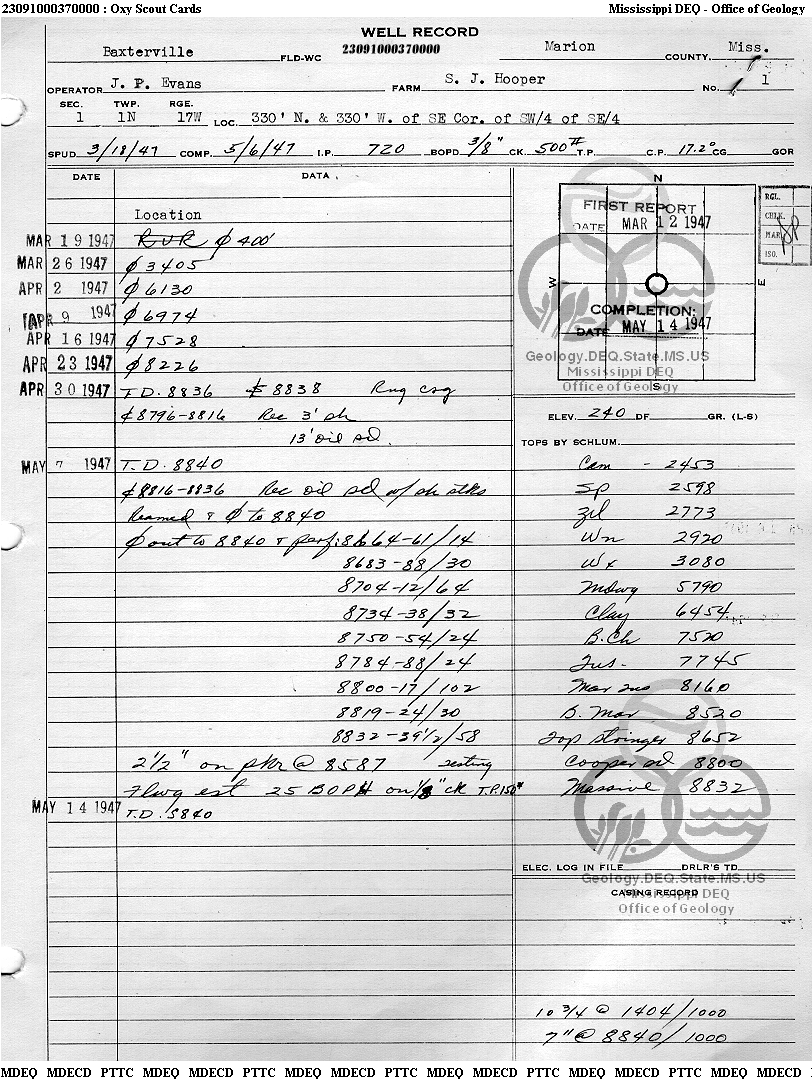 23091000370000 : Oxy Scout Cards Mississippi DEQ - Office of Geology
WELL RECORD
Baxterville FLD-WC 23091000370000 Marion COUNTY, Miss.
OPERATOR J. P. Evans FARM S. J. Hooper NO. 1
SEC. TWP. RGE.
1 1N 17W LOC. 330' N. & 330' W. of SE Cor. of SW/4 of SE/4
SPUD 3/18/47 COMP. 5/6/47 I.P. 720 BOPD 3/8" CK. 500# T.P. C.P. 17.2° CG GOR
DATE DATA
Location
MAR 19 1947 RUR ∅ 400'
MAR 26 1947 ∅ 3405
APR 2 1947 ∅ 6130
APR 9 1947 ∅ 6974
APR 16 1947 ∅ 7528
APR 23 1947 ∅ 8226
APR 30 1947 T.D. 8836 8838 Rng csg
¢ 8796-8816 Rec 3' sh
13' oil sd.
MAY 7 1947 T.D. 8840
¢ 8816-8836 Rec oil sd w/ sh stks
Reamed & ∅ to 8840
∅ out to 8840 & perf: 8664-61/14
8683-88/30
8704-12/64
8734-38/32
8750-54/24
8784-88/24
8800-17/102
8819-24/30
8832-39 1/2/58
2 1/2" on pkr @ 8587 testing
Flwg est 25 BOPH on 1/8" ck T.P. 150#
MAY 14 1947 T.D. 8840
N
FIRST REPORT
DATE MAR 12 1947
W E
COMPLETION:
DATE MAY 14 1947
S
RGL.
CHK.
MAP
ISO.
Geology.DEQ.State.MS.US
Mississippi DEQ
Office of Geology
ELEV. 240 DF GR. (L-S)
TOPS BY SCHLUM.
Cam - 2453
Sp 2598
Zil 2773
Wn 2920
Wx 3080
Mdwy 5790
Clay 6454
B.Ch 7520
Tus. 7745
Mar Tus 8160
B. Mar 8520
Top Stringer 8652
Cooper sd 8800
Massive 8832
ELEC. LOG IN FILE DRLR'S TD
Geology.DEQ.State.MS.US
CASING RECORD
Mississippi DEQ
Office of Geology
10 3/4 @ 1404/1000
7" @ 8840/1000
MDEQ MDECD PTTC MDEQ MDECD PTTC MDEQ MDECD PTTC MDEQ MDECD PTTC MDEQ MDECD